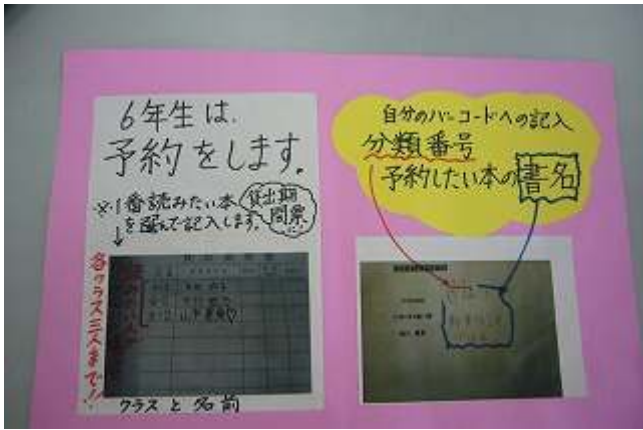 6年生は、
予約をします。
※1番読みたい本
を選んで記入します。
貸出期
間票
各クラス三人まで!!
クラスと名前
自分のバーコードへの記入
分類番号
予約したい本の書名